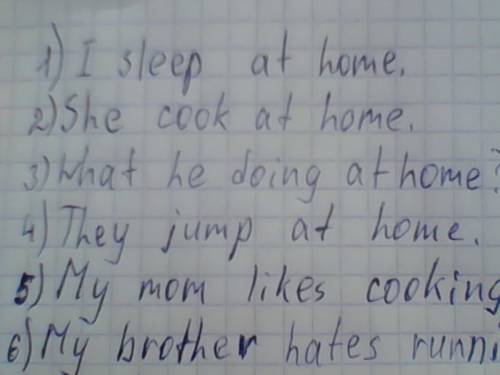 1) I sleep at home.
2) She cook at home.
3) What he doing at home?
4) They jump at home.
5) My mom likes cooking
6) My brother hates runni